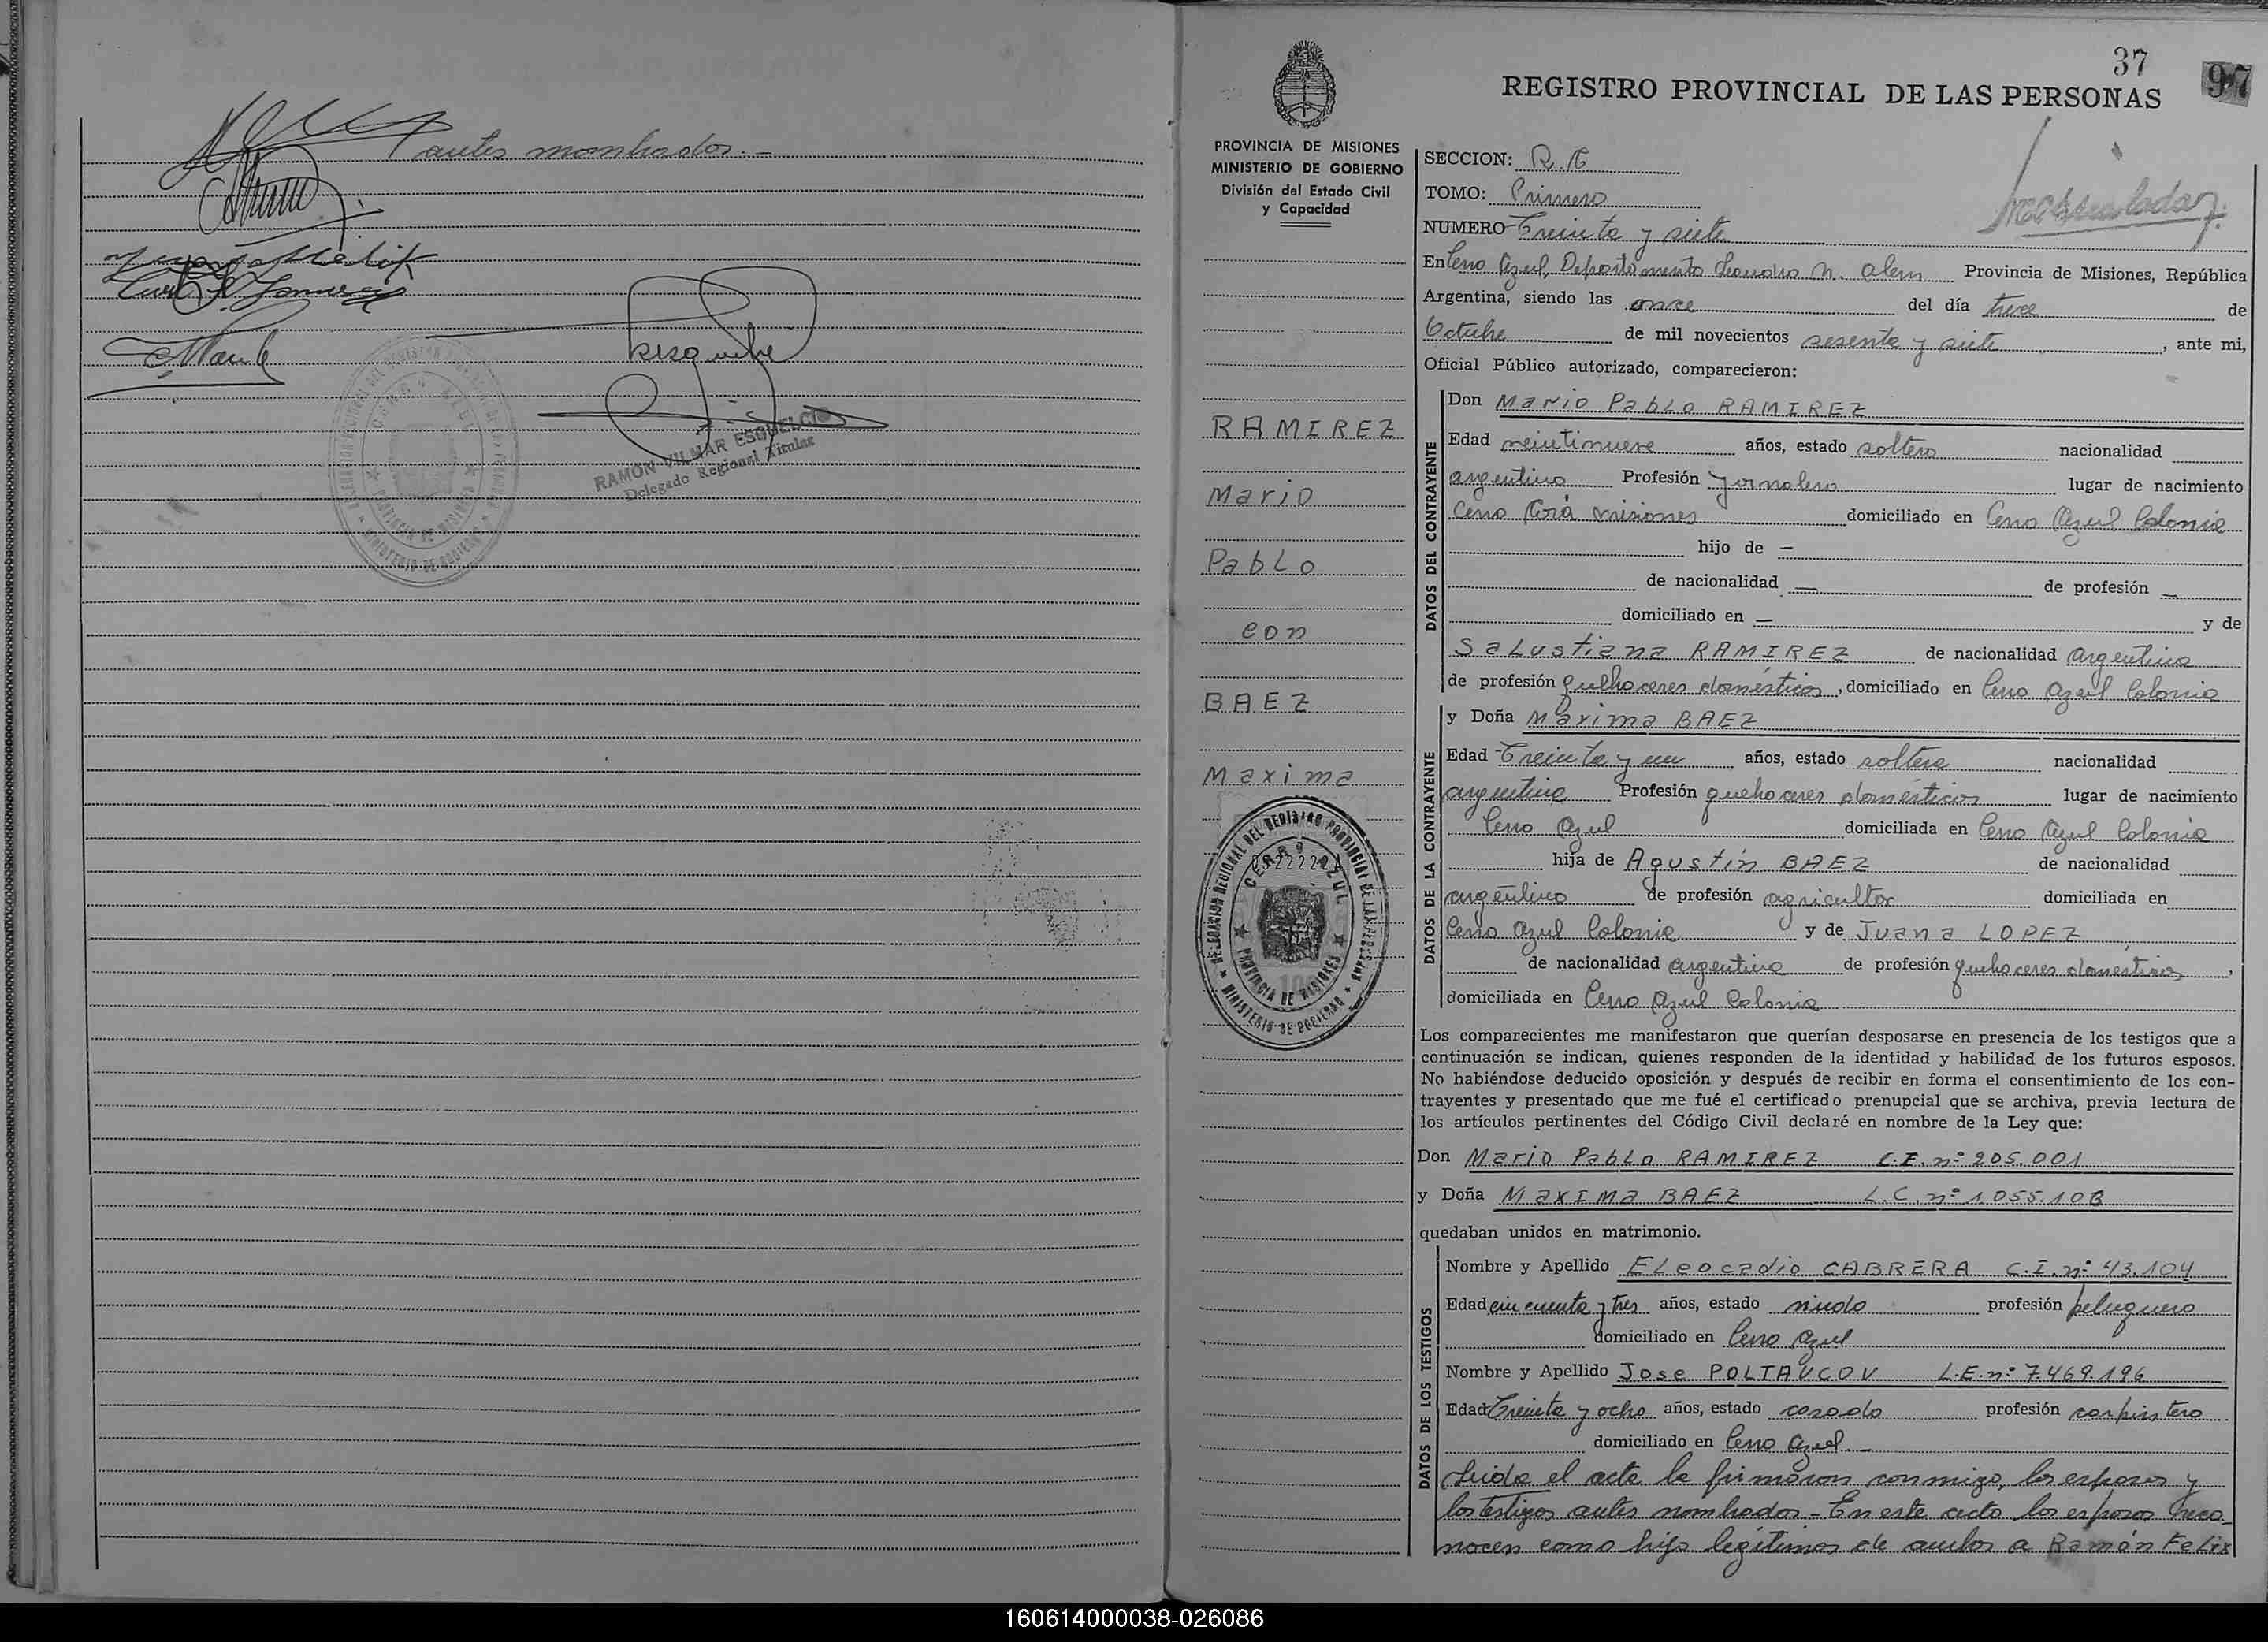 antes nombrados.-
Esquivel
RAMON VILMAR ESQUELCI
Delegado Regional Titular
CERRO AZUL
PROVINCIA DE MISIONES
MINISTERIO DE GOBIERNO
37
97
REGISTRO PROVINCIAL DE LAS PERSONAS
PROVINCIA DE MISIONES
MINISTERIO DE GOBIERNO
División del Estado Civil
y Capacidad
RAMIREZ
Mario
Pablo
con
BAEZ
Maxima
DELEGACION REGIONAL DEL REGISTRO PROVINCIAL DE LAS PERSONAS
CERRO AZUL
PROVINCIA DE MISIONES
MINISTERIO DE GOBIERNO
SECCION: R.C
TOMO: Primero
NUMERO Treinta y siete
En Cerro Azul, Departamento Leandro N. Alem Provincia de Misiones, República
Argentina, siendo las once del día trece de
Octubre de mil novecientos sesenta y siete, ante mi,
Oficial Público autorizado, comparecieron:
DATOS DEL CONTRAYENTE
Don Mario Pablo RAMIREZ
Edad veintinueve años, estado soltero nacionalidad
argentino Profesión jornalero lugar de nacimiento
Cerro Corá Misiones domiciliado en Cerro Azul Colonia
hijo de —
de nacionalidad — de profesión —
domiciliado en — y de
Salustiana RAMIREZ de nacionalidad argentina
de profesión quehaceres domésticos, domiciliado en Cerro Azul Colonia
DATOS DE LA CONTRAYENTE
y Doña Máxima BAEZ
Edad Treinta y un años, estado soltera nacionalidad
argentina Profesión quehaceres domésticos lugar de nacimiento
Cerro Azul domiciliada en Cerro Azul Colonia
hija de Agustín BAEZ de nacionalidad
argentino de profesión agricultor domiciliada en
Cerro Azul Colonia y de Juana LOPEZ
de nacionalidad argentina de profesión quehaceres domésticos,
domiciliada en Cerro Azul Colonia
Los comparecientes me manifestaron que querían desposarse en presencia de los testigos que a
continuación se indican, quienes responden de la identidad y habilidad de los futuros esposos.
No habiéndose deducido oposición y después de recibir en forma el consentimiento de los con-
trayentes y presentado que me fué el certificado prenupcial que se archiva, previa lectura de
los artículos pertinentes del Código Civil declaré en nombre de la Ley que:
Don Mario Pablo RAMIREZ C.I. nº 205.001
y Doña MaxIma BAEZ L.C. nº 1.055.108
quedaban unidos en matrimonio.
DATOS DE LOS TESTIGOS
Nombre y Apellido ELeocadio CABRERA C.I. nº 43.104
Edad cincuenta y tres años, estado viudo profesión peluquero
domiciliado en Cerro Azul
Nombre y Apellido Jose POLIAUCOV L.E. nº 7.469.196
Edad Treinta y ocho años, estado casado profesión carpintero
domiciliado en Cerro Azul.-
Leida el acta la firmaron conmigo, los esposos y
los testigos antes nombrados - En este acto los esposos reco-
nocen como hijo legítimos de ambos a Ramón FeLix
160614000038-026086